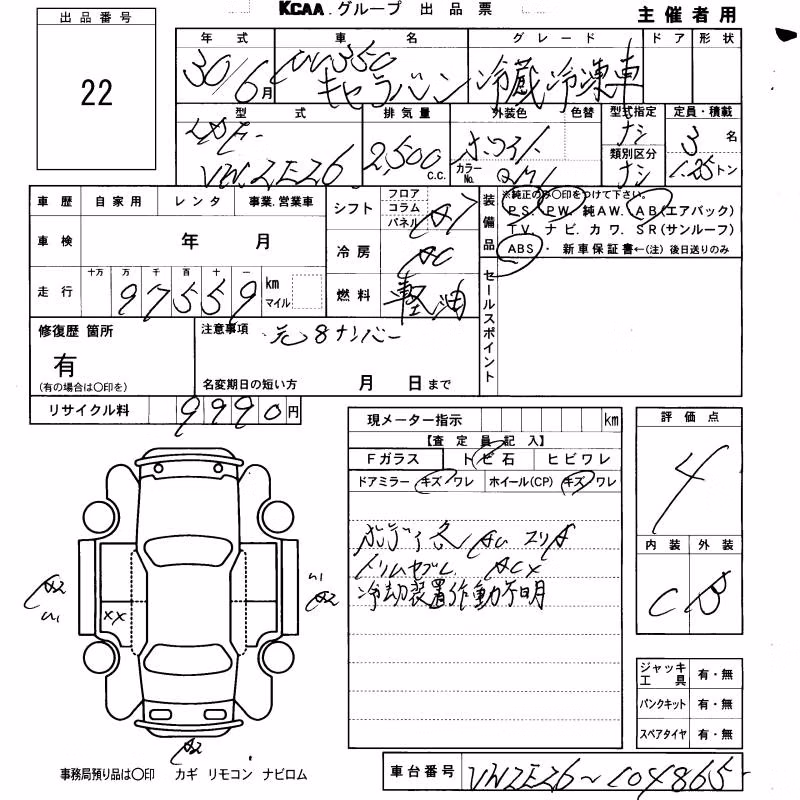 KCAA.グループ 出品票
主催者用
出品番号
22
年式 車名 グレード ドア 形状
30/6月 NV350 キャラバン 冷蔵冷凍車
型式 排気量 外装色 色替 型式指定 定員・積載
LDF- ホワイト ナシ 3名
VW2E26 2,500c.c. カラーNo. QM1 類別区分 ナシ 1.25トン
車歴 自家用 レンタ 事業.営業車
車検 年 月
走行 十万 万 千 百 十 一
97559 km マイル
シフト フロア コラム パネル AT
冷房 AC
燃料 軽油
装備品
※純正のみ○印をつけて下さい。
PS. PW. 純AW. AB(エアバック)
TV. ナビ. カワ. SR(サンルーフ)
ABS・ 新車保証書←(注)後日送りのみ
セールスポイント
修復歴 箇所
有
(有の場合は○印を)
注意事項 元8ナンバー
名変期日の短い方 月 日まで
リサイクル料 9990円
現メーター指示 km
【査定員記入】
Fガラス トビ石 ヒビワレ
ドアミラー キズ ワレ ホイール(CP) キズ ワレ
ボディ各 AU スリA
トリムヤブレ ACX
冷却装置作動不明
評価点
4
内装 外装
C B
A2
U1
XX
U1
A2
A2
ジャッキ工具 有・無
パンクキット 有・無
スペアタイヤ 有・無
事務局預り品は○印 カギ リモコン ナビロム
車台番号 VW2E26~104865-